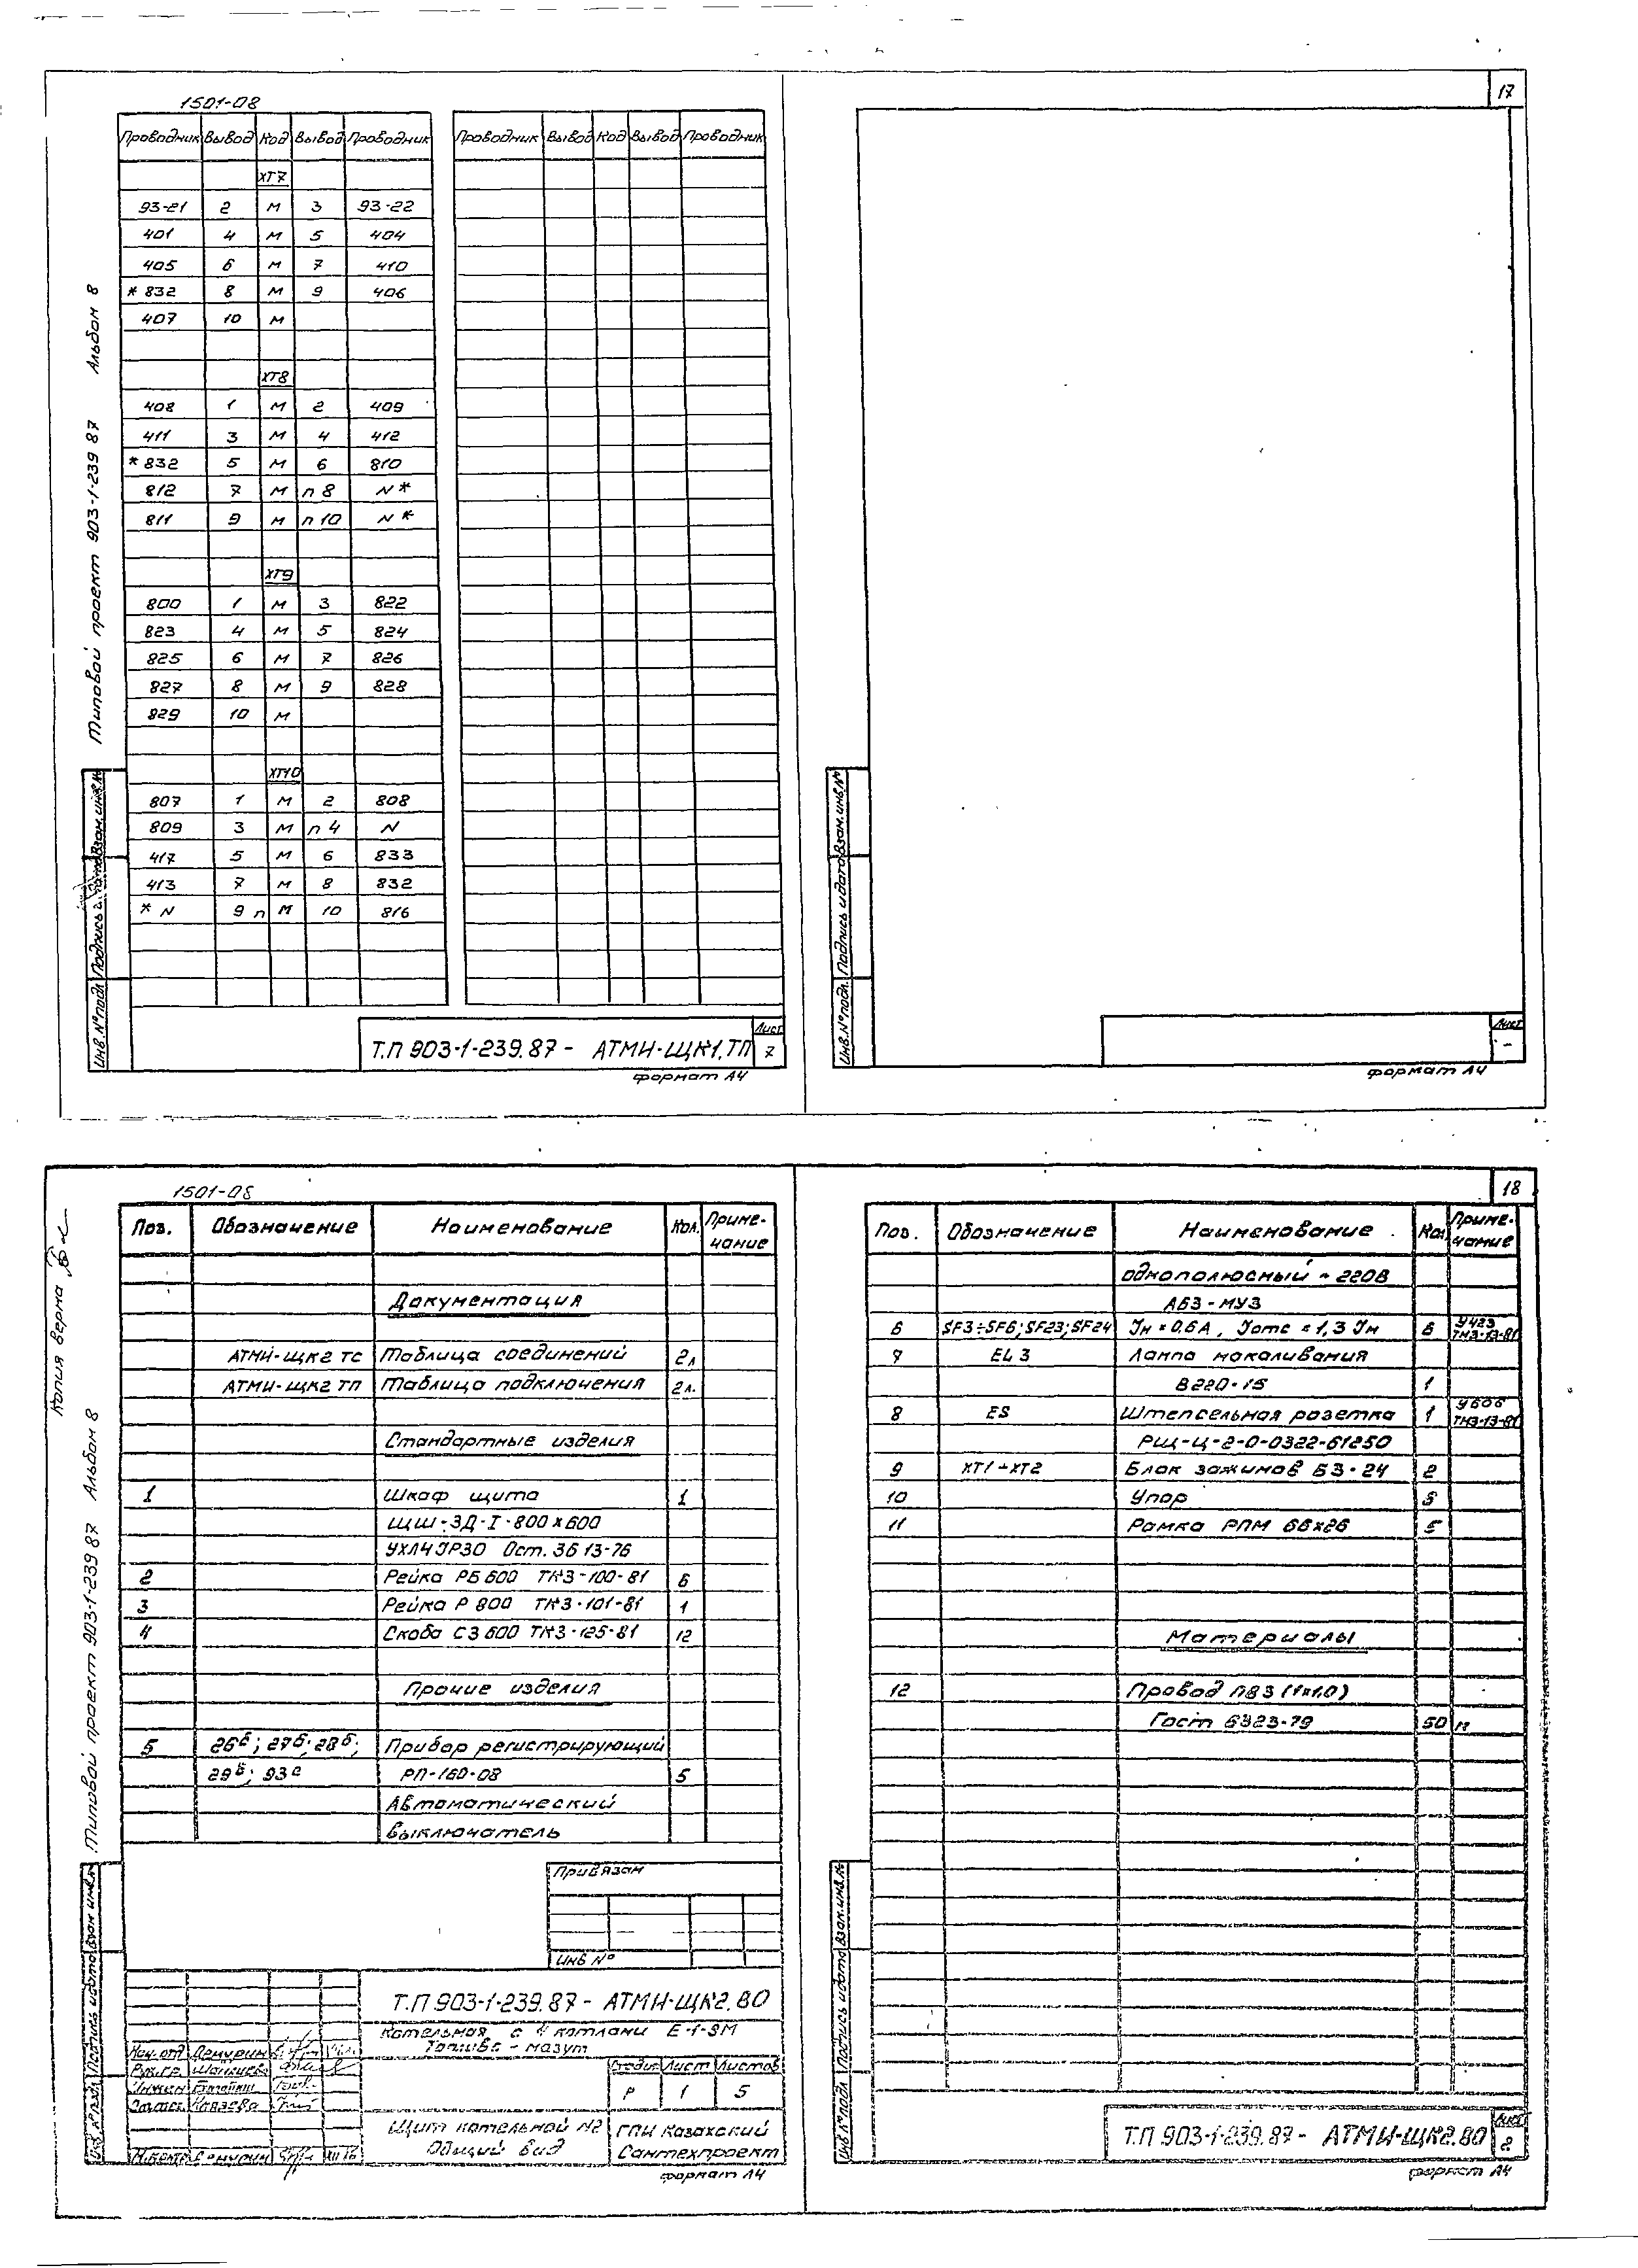 17
1501-08
Проводник Вывод Код Вывод Проводник
Проводник Вывод Код Вывод Проводник
ХТ7
93-21 2 М 3 93-22
401 4 М 5 404
405 6 М 7 410
* 832 8 М 9 406
407 10 М
ХТ8
408 1 М 2 409
411 3 М 4 412
* 832 5 М 6 810
812 7 М п 8 N *
811 9 М п 10 N *
ХТ9
800 1 М 3 822
823 4 М 5 824
825 6 М 7 826
827 8 М 9 828
829 10 М
ХТ10
807 1 М 2 808
809 3 М п 4 N
417 5 М 6 833
413 7 М 8 832
* N 9 п М 10 816
Типовой проект 903-1-239 87 Альбом 8
Инв.№ подл Подпись Взам.инв.№
Т.П 903-1-239.87 - АТМИ-ЩК1.ТП
Лист
7
формат А4
Инв.№ подл. Подпись и дата Взам.инв.№
Лист
-
формат А4
1501-08
Копия верна
Типовой проект 903-1-239 87 Альбом 8
Поз. Обозначение Наименование Кол. Приме-
чание
Документация
АТМИ-ЩК2 ТС Таблица соединений 2л
АТМИ-ЩК2 ТП Таблица подключения 2л.
Стандартные изделия
1 Шкаф щита 1
ЩШ-ЗД-I-800х600
УХЛ4 IР30 Ост. 36 13-76
2 Рейка РБ 600 ТК3-100-81 6
3 Рейка Р 800 ТК3-101-81 1
4 Скоба С3 600 ТК3-125-81 12
Прочие изделия
5 26б; 27б; 28б; Прибор регистрирующий
29б; 93а РП-160-08 5
Автоматический
выключатель
Привязан
Инв №
Т.П 903-1-239.87 - АТМИ-ЩК2.ВО
Котельная с 4 котлами Е-1-9М
Топливо - мазут
Стадия Лист Листов
Р 1 5
Щит котельной №2
Общий вид
ГПИ Казахский
Сантехпроект
формат А4
18
Поз. Обозначение Наименование Кол Приме-
чание
однополюсный ~ 220В
АБЗ-МУЗ
6 SF3÷SF6; SF23; SF24 Iн = 0,6А, Iотс = 1,3 Iн 6 У423
ТК3-13-81
7 EL3 Лампа накаливания
В220-15 1
8 ES Штепсельная розетка 1 У606
ТК3-13-81
РЩ-Ц-2-0-0322-61250
9 ХТ1÷ХТ2 Блок зажимов БЗ-24 2
10 Упор 5
11 Рамка РПМ 66х26 5
Материалы
12 Провод ПВ3 (1х1,0)
Гост 6323-79 50 м
Инв № подл Подпись и дата Взам.инв.№
Т.П 903-1-239.87 - АТМИ-ЩК2.ВО
Лист
2
формат А4